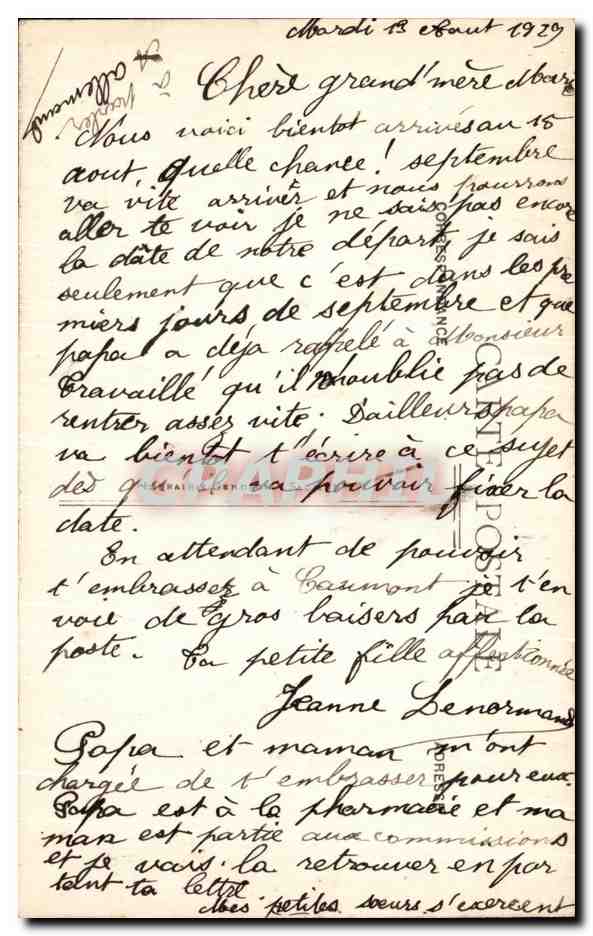 Mardi 13 Aout 1929
Chère grand'mère Marie
Nous voici bientot arrivés au 15
aout, quelle chance! septembre
va vite arriver et nous pourrons
aller te voir je ne sais pas encore
la dâte de notre départ, je sais
seulement que c'est dans les pre
miers jours de septembre et que
papa a déja rappelé à Monsieur
Travaillé qu'il n'oublie pas de
rentrer assez vite. D'ailleurs papa
va bientot t'écrire à ce sujet
dès qu'il va pouvoir fixer la
date.
En attendant de pouvoir
t'embrasser à Caumont je t'en
voie de gros baisers par la
poste. Ta petite fille affectionnée
Jeanne Lenormand
Papa et maman m'ont
chargée de t'embrasser pour eux.
Papa est à la pharmacie et ma
man est partie aux commissions
et je vais la retrouver en por
tant ta lettre
Mes petites soeurs s'exercent
à parler
allemand
CARTE POSTALE
CORRESPONDANCE
ADRESSE
CPAPHIL